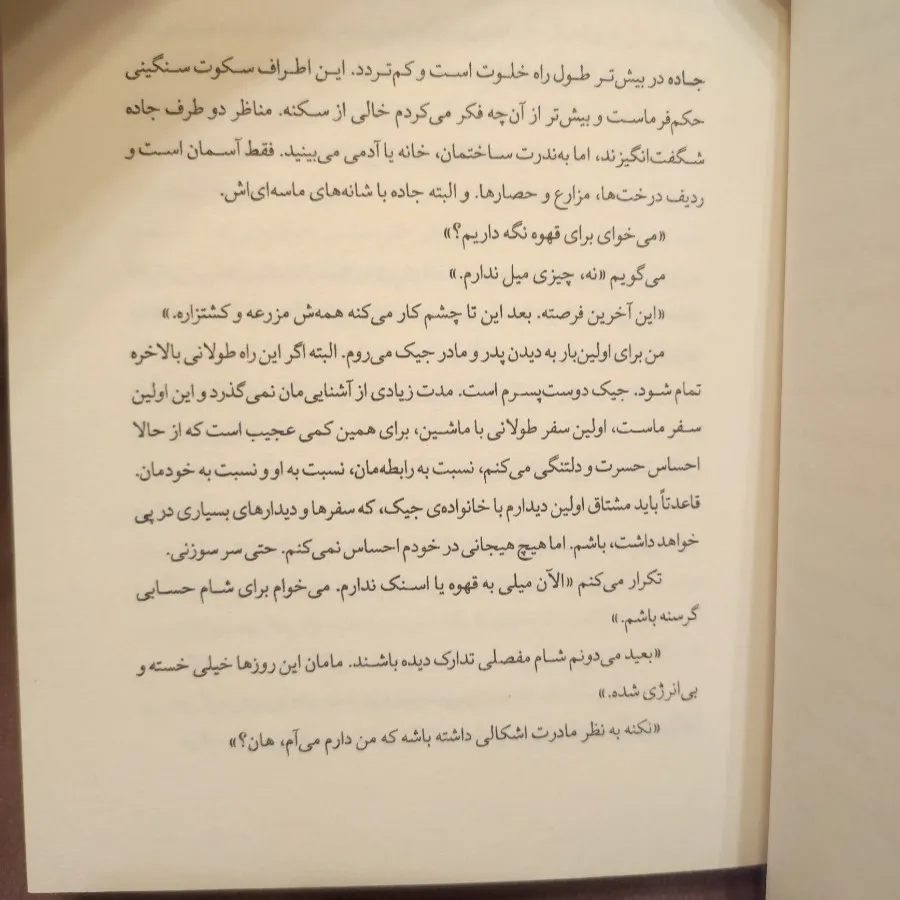 جاده در بیش‌تر طول راه خلوت است و کم‌تردد. این اطراف سکوت سنگینی
حکم‌فرماست و بیش‌تر از آن‌چه فکر می‌کردم خالی از سکنه. مناظر دو طرف جاده
شگفت‌انگیزند، اما به‌ندرت ساختمان، خانه یا آدمی می‌بینید. فقط آسمان است و
ردیف درخت‌ها، مزارع و حصارها. و البته جاده با شانه‌های ماسه‌ای‌اش.
«می‌خوای برای قهوه نگه داریم؟»
می‌گویم «نه، چیزی میل ندارم.»
«این آخرین فرصته. بعد این تا چشم کار می‌کنه همه‌ش مزرعه و کشتزاره.»
من برای اولین‌بار به دیدن پدر و مادر جیک می‌روم. البته اگر این راه طولانی بالاخره
تمام شود. جیک دوست‌پسرم است. مدت زیادی از آشنایی‌مان نمی‌گذرد و این اولین
سفر ماست، اولین سفر طولانی با ماشین، برای همین کمی عجیب است که از حالا
احساس حسرت و دلتنگی می‌کنم، نسبت به رابطه‌مان، نسبت به او و نسبت به خودمان.
قاعدتاً باید مشتاق اولین دیدارم با خانواده‌ی جیک، که سفرها و دیدارهای بسیاری در پی
خواهد داشت، باشم. اما هیچ هیجانی در خودم احساس نمی‌کنم. حتی سر سوزنی.
تکرار می‌کنم «الآن میلی به قهوه یا اسنک ندارم. می‌خوام برای شام حسابی
گرسنه باشم.»
«بعید می‌دونم شام مفصلی تدارک دیده باشند. مامان این روزها خیلی خسته و
بی‌انرژی شده.»
«نکنه به نظر مادرت اشکالی داشته باشه که من دارم می‌آم، هان؟»